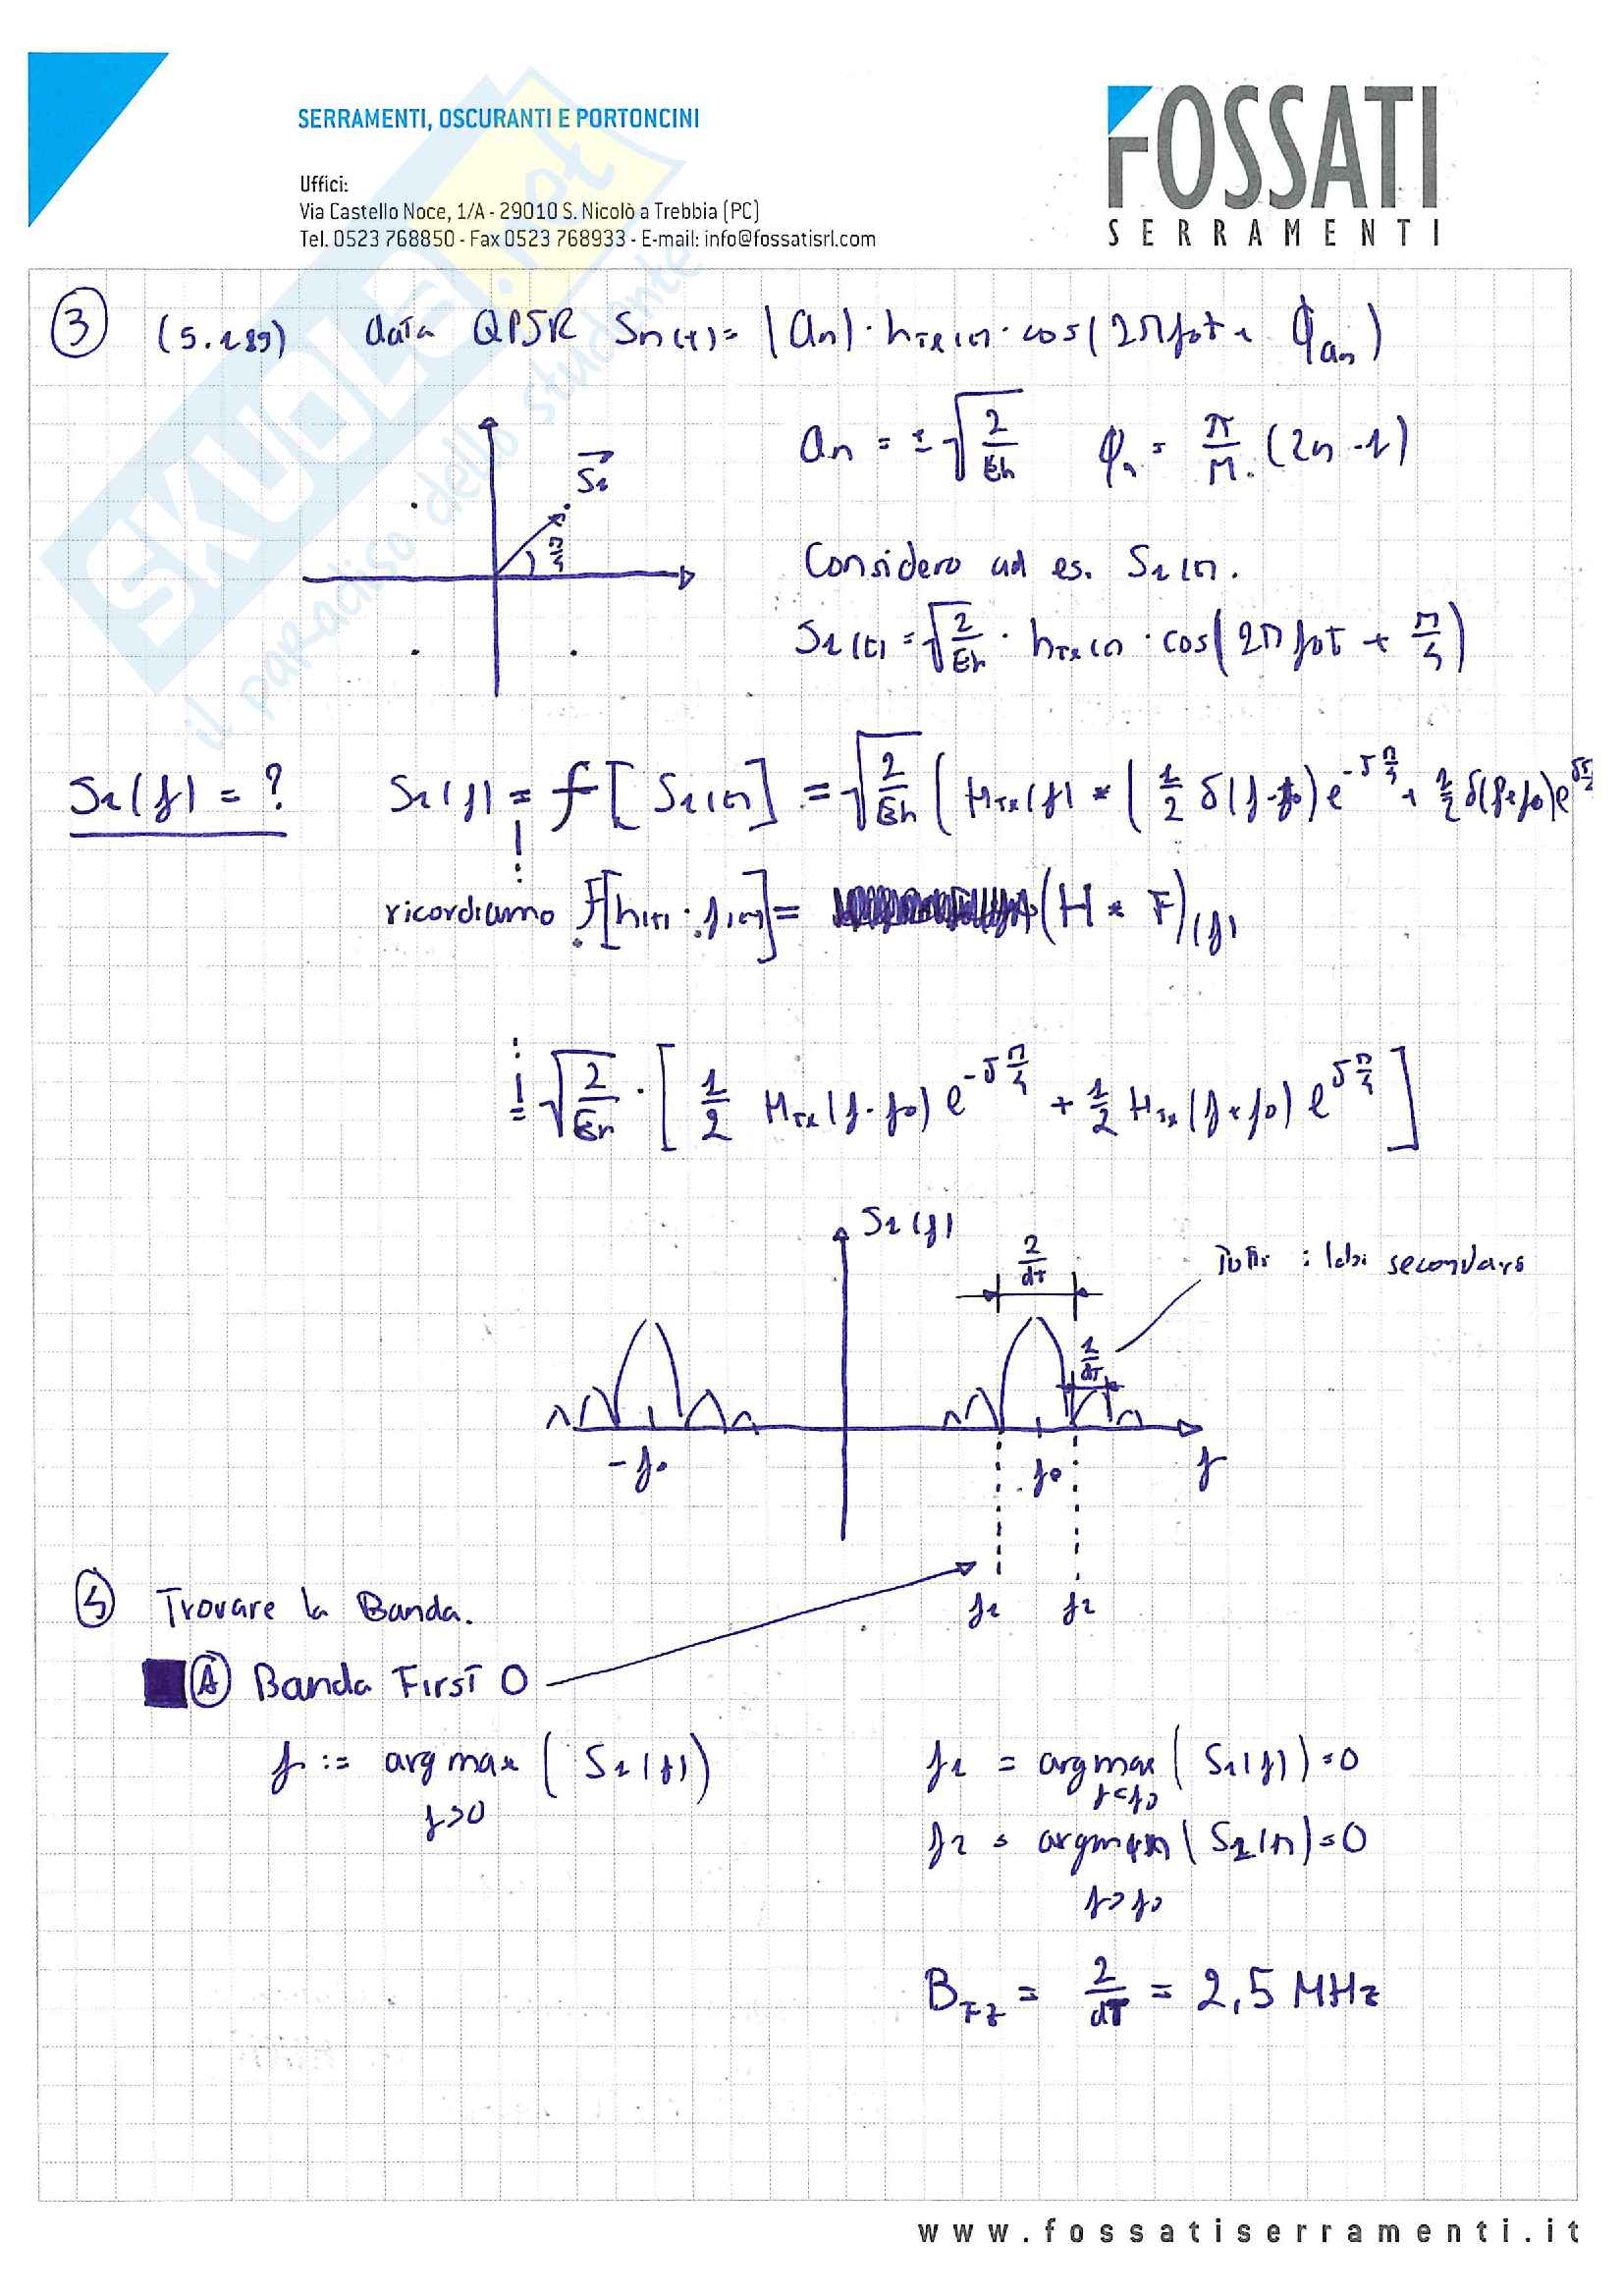 SERRAMENTI, OSCURANTI E PORTONCINI
FOSSATI
SERRAMENTI
Uffici:
Via Castello Noce, 1/A - 29010 S. Nicolò a Trebbia (PC)
Tel. 0523 768850 - Fax 0523 768933 - E-mail: info@fossatisrl.com
SKUOLA.net
il paradiso dello studente
③ (5.189) data QPSK Sn(t) = |an| · hTx(t) · cos(2πf0t + φan)
an = ±√(2/Eh) φn = π/M · (2n-1)
S1 π/4
Considero ad es. S1(t).
S1(t) = √(2/Eh) · hTx(t) · cos(2πf0t + π/4)
S1(f) = ? S1(f) = F[S1(t)] = √(2/Eh) (HTx(f) * (1/2 δ(f-f0) e^-Jπ/4 + 1/2 δ(f+f0) e^Jπ/4
ricordiamo F[h(t) · f(t)] = (H * F)(f)
= √(2/Eh) · [1/2 HTx(f-f0) e^-Jπ/4 + 1/2 HTx(f+f0) e^Jπ/4]
S1(f)
2/dT
Tutti i lobi secondari
1/dT
-f0 f0 f
f1 f2
④ Trovare la Banda.
Ⓐ Banda First 0
f0 := argmax (S1(f))
f>0
f1 = argmax (S1(f)) = 0
f<f0
f2 = argmin (S1(f)) = 0
f>f0
BFZ = 2/dT = 2,5 MHz
www.fossatiserramenti.it